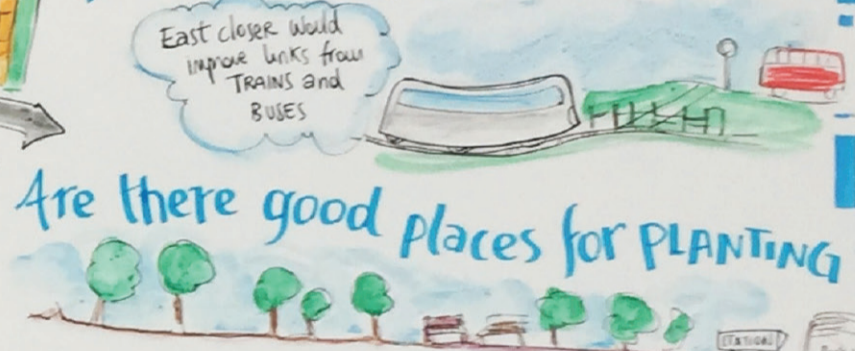 East closer would
improve links from
TRAINS and
BUSES
Are there good places for PLANTING
STATION